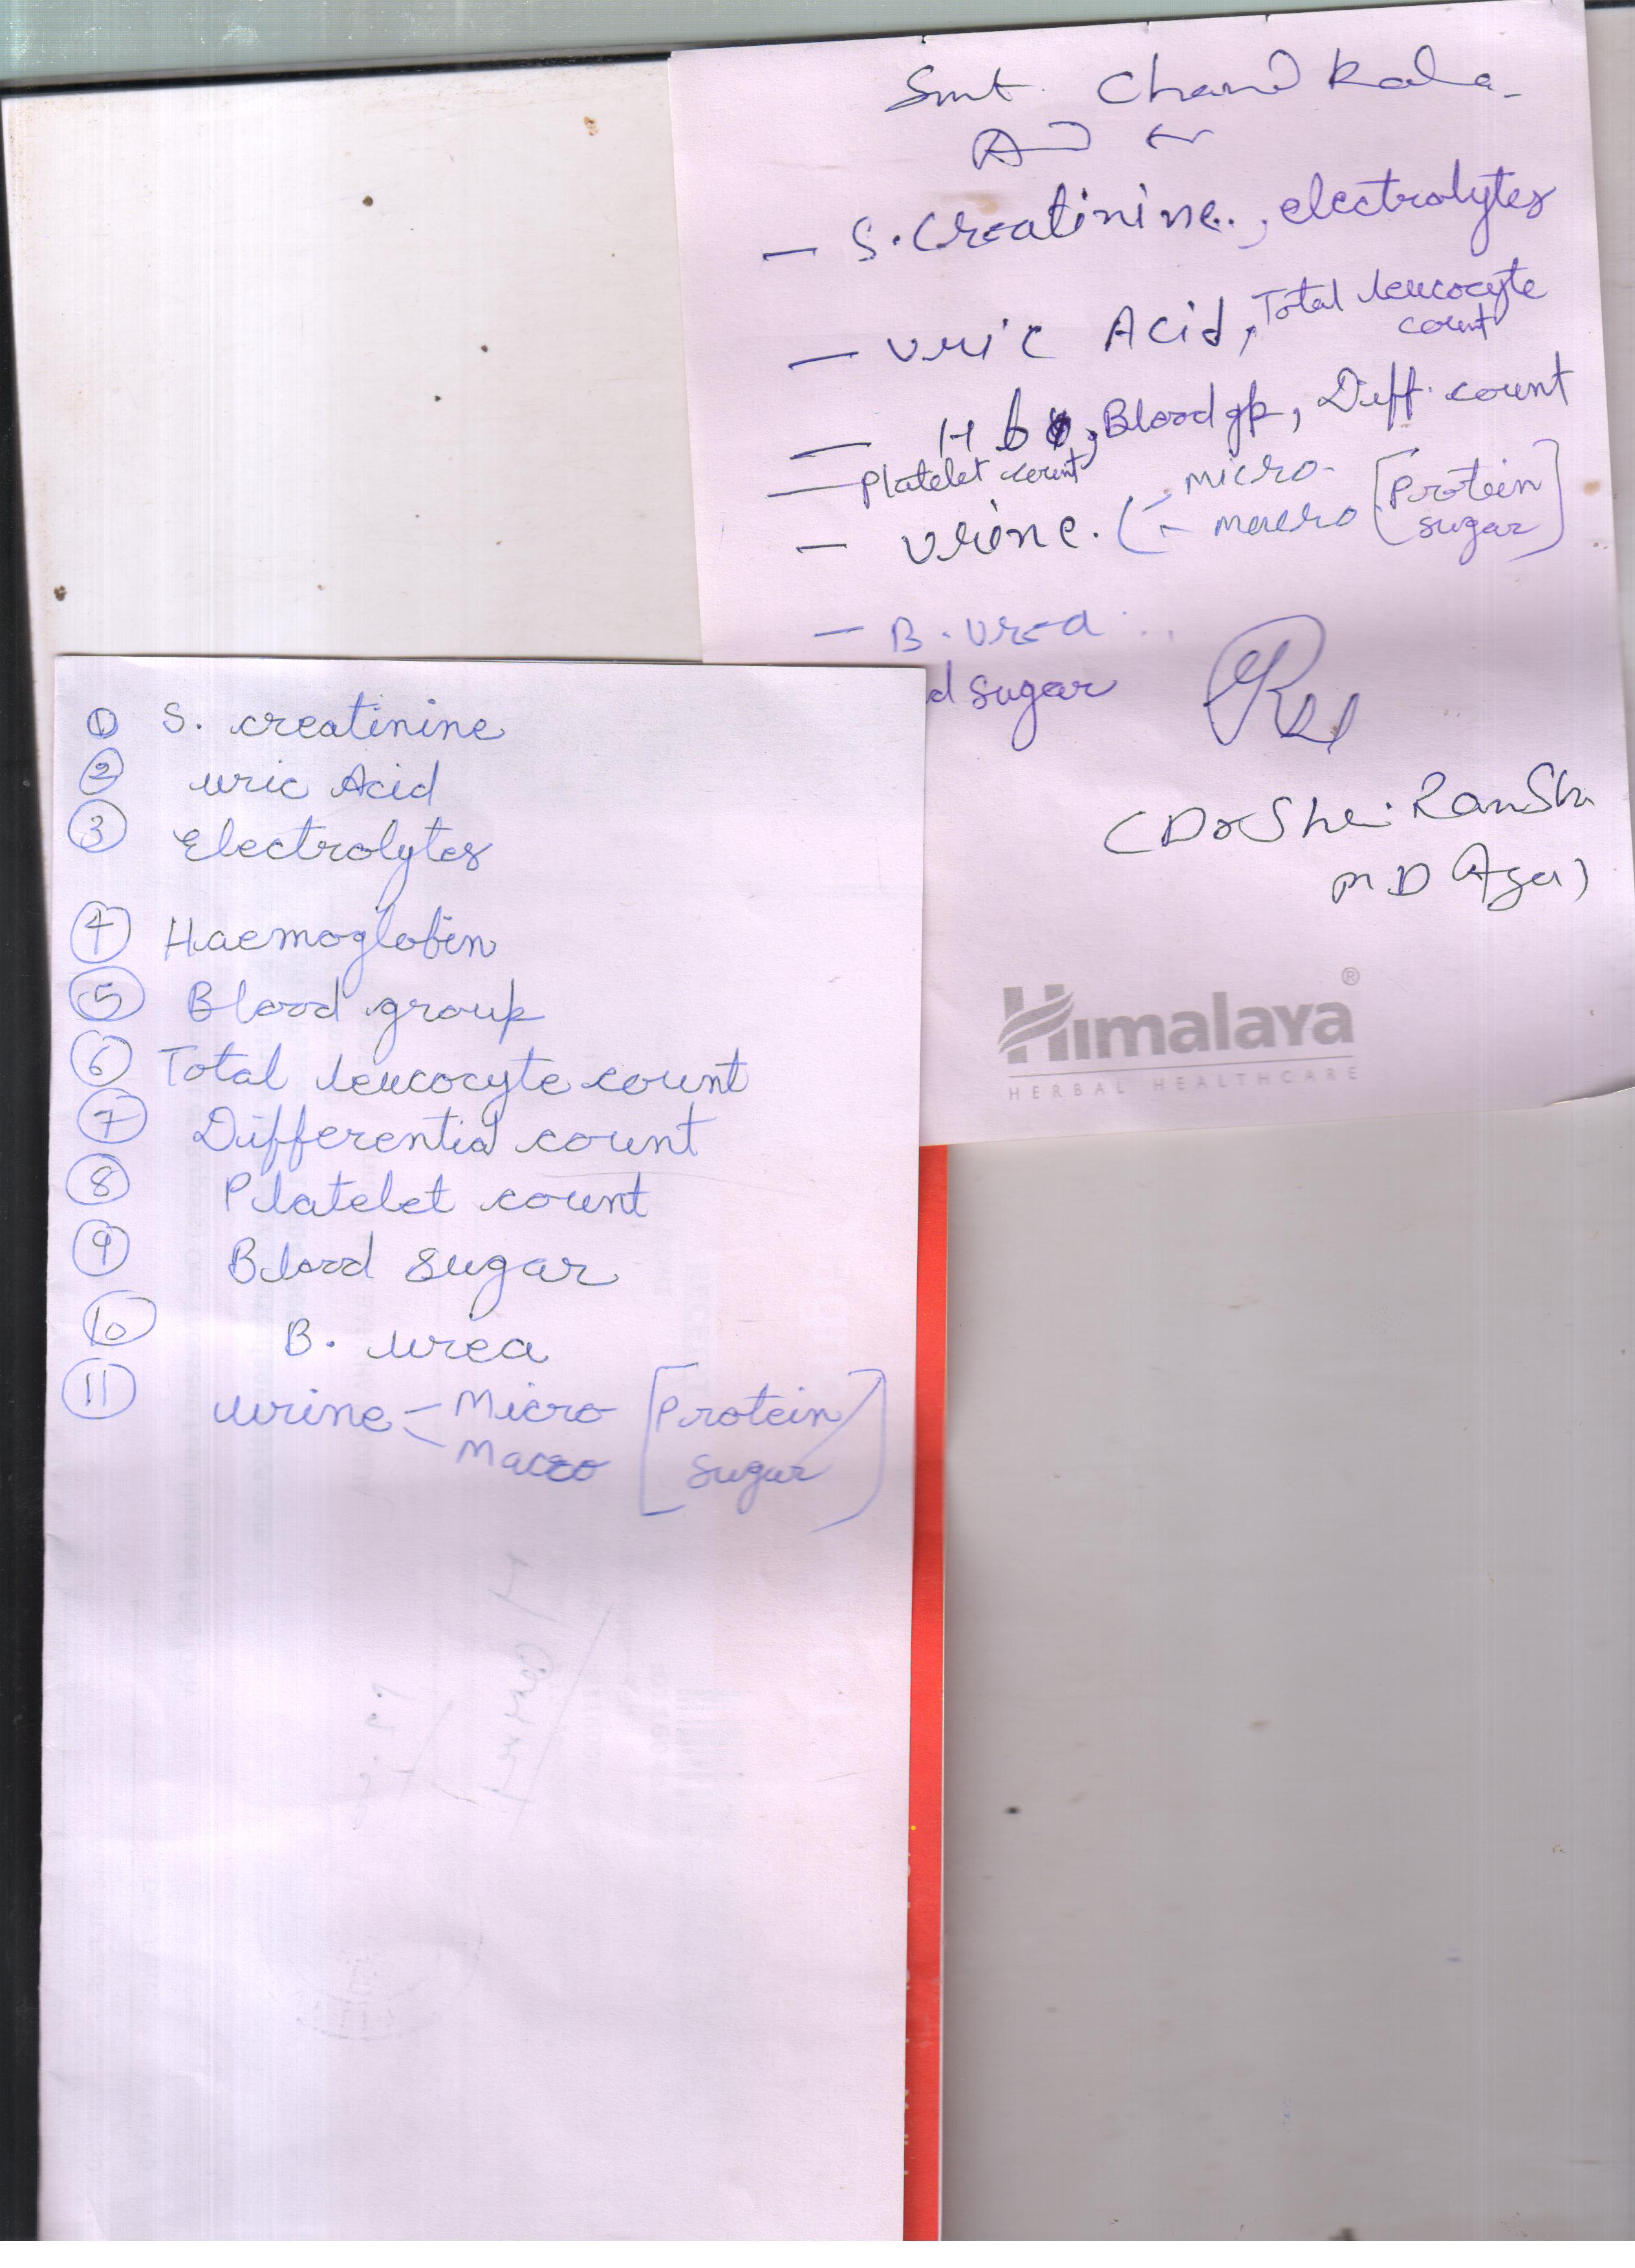 Smt. Chand Kala
- S. Creatinine, electrolytes
- Uric Acid, Total leucocyte
count
- Hb, Blood gp, Diff. count
- Platelet count
- Urine. micro
macro [Protein
sugar]
- B. Urea
d sugar
(Dr Shri Ram
M D
Himalaya®
HERBAL HEALTHCARE
1 S. creatinine
2 uric Acid
3 Electrolytes
4 Haemoglobin
5 Blood group
6 Total leucocyte count
7 Differential count
8 Platelet count
9 Blood sugar
10 B. urea
11 urine - Micro [Protein
Macro sugar]